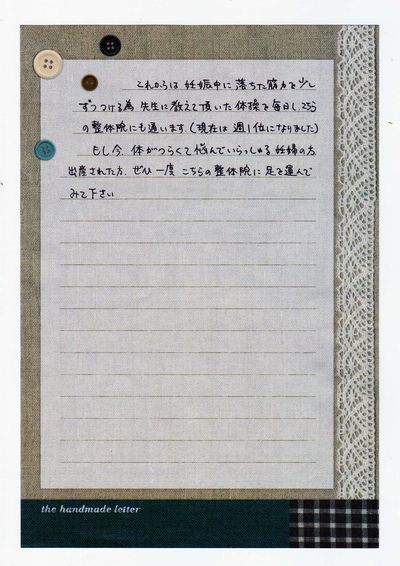 これからは 妊娠中に 落ちた筋力を少し
ずつつける為 先生に教えて頂いた 体操を毎日し、こちら
の整体院にも通います。(現在は 週1位になりました)
もし今、体がつらくて悩んでいらっしゃる 妊婦の方、
出産された方、ぜひ一度 こちらの整体院に足を運んで
みて下さい
the handmade letter